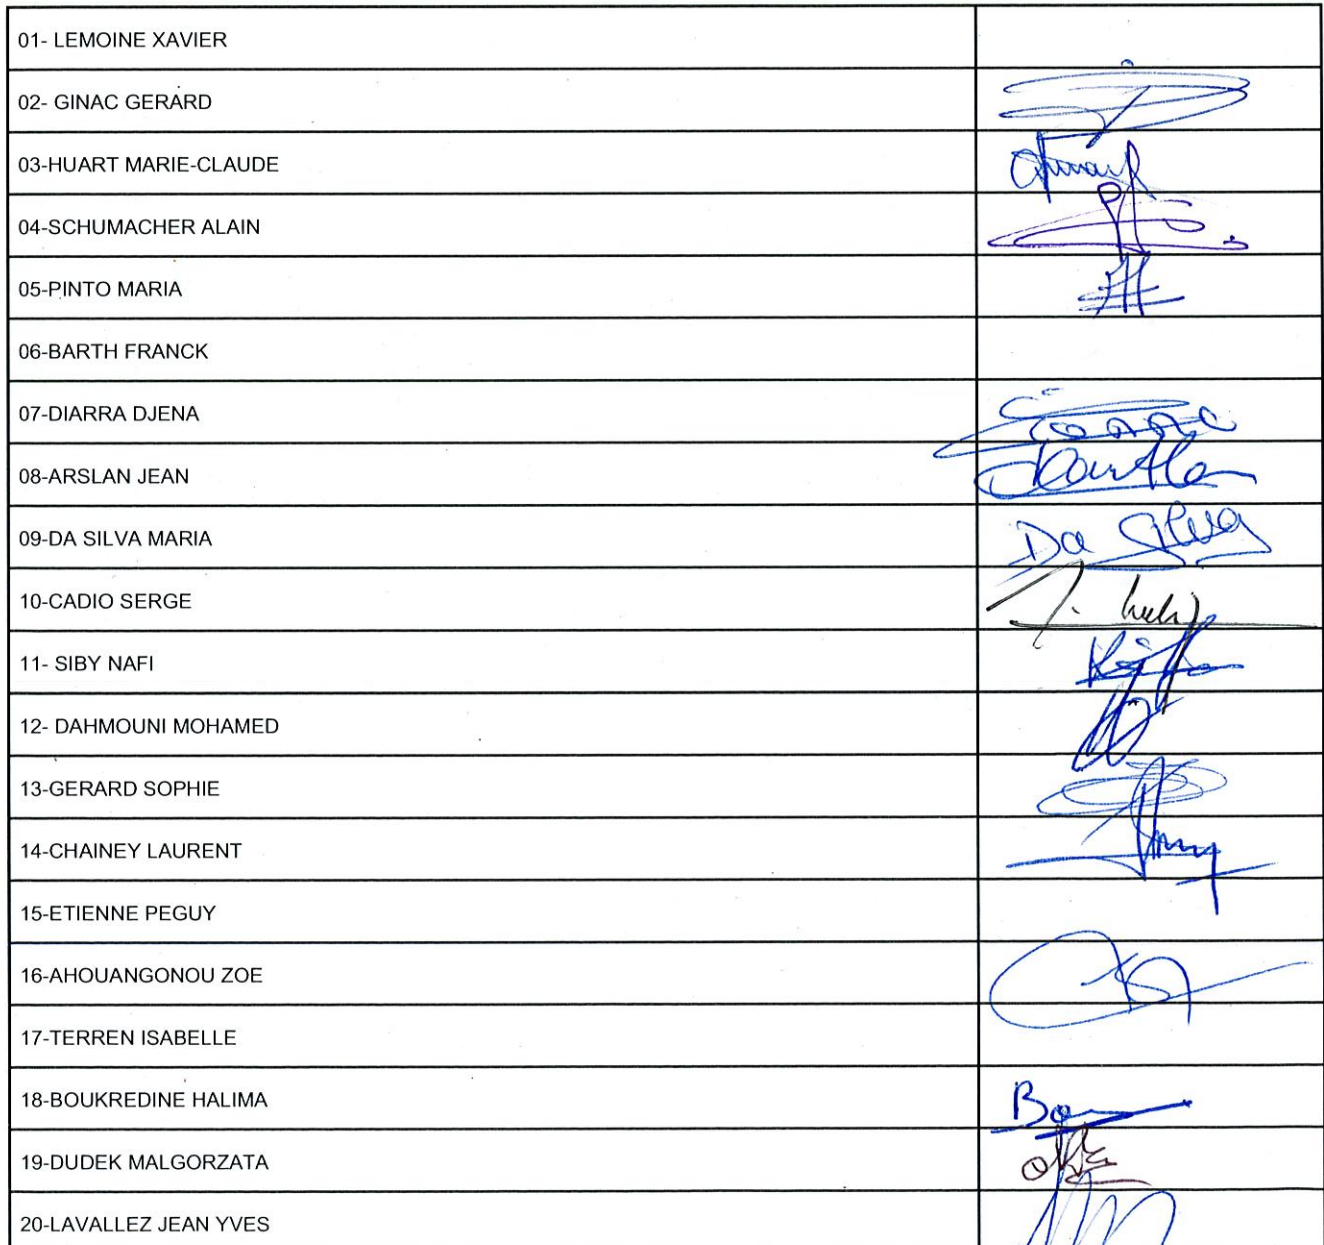 01- LEMOINE XAVIER
02- GINAC GERARD
03-HUART MARIE-CLAUDE
04-SCHUMACHER ALAIN
05-PINTO MARIA
06-BARTH FRANCK
07-DIARRA DJENA
08-ARSLAN JEAN
09-DA SILVA MARIA Da Silva
10-CADIO SERGE
11- SIBY NAFI
12- DAHMOUNI MOHAMED
13-GERARD SOPHIE
14-CHAINEY LAURENT
15-ETIENNE PEGUY
16-AHOUANGONOU ZOE
17-TERREN ISABELLE
18-BOUKREDINE HALIMA
19-DUDEK MALGORZATA
20-LAVALLEZ JEAN YVES